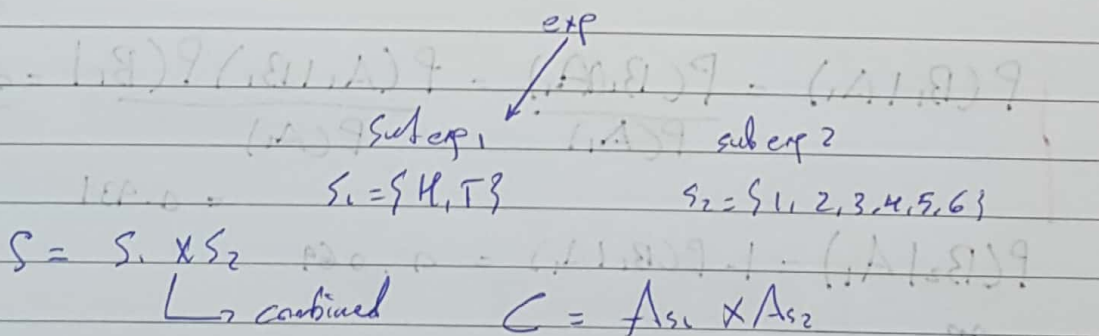 exp
sub exp1 sub exp 2
S1 = {H, T} S2 = {1, 2, 3, 4, 5, 6}
S = S1 x S2
↳ combined C = As1 x As2